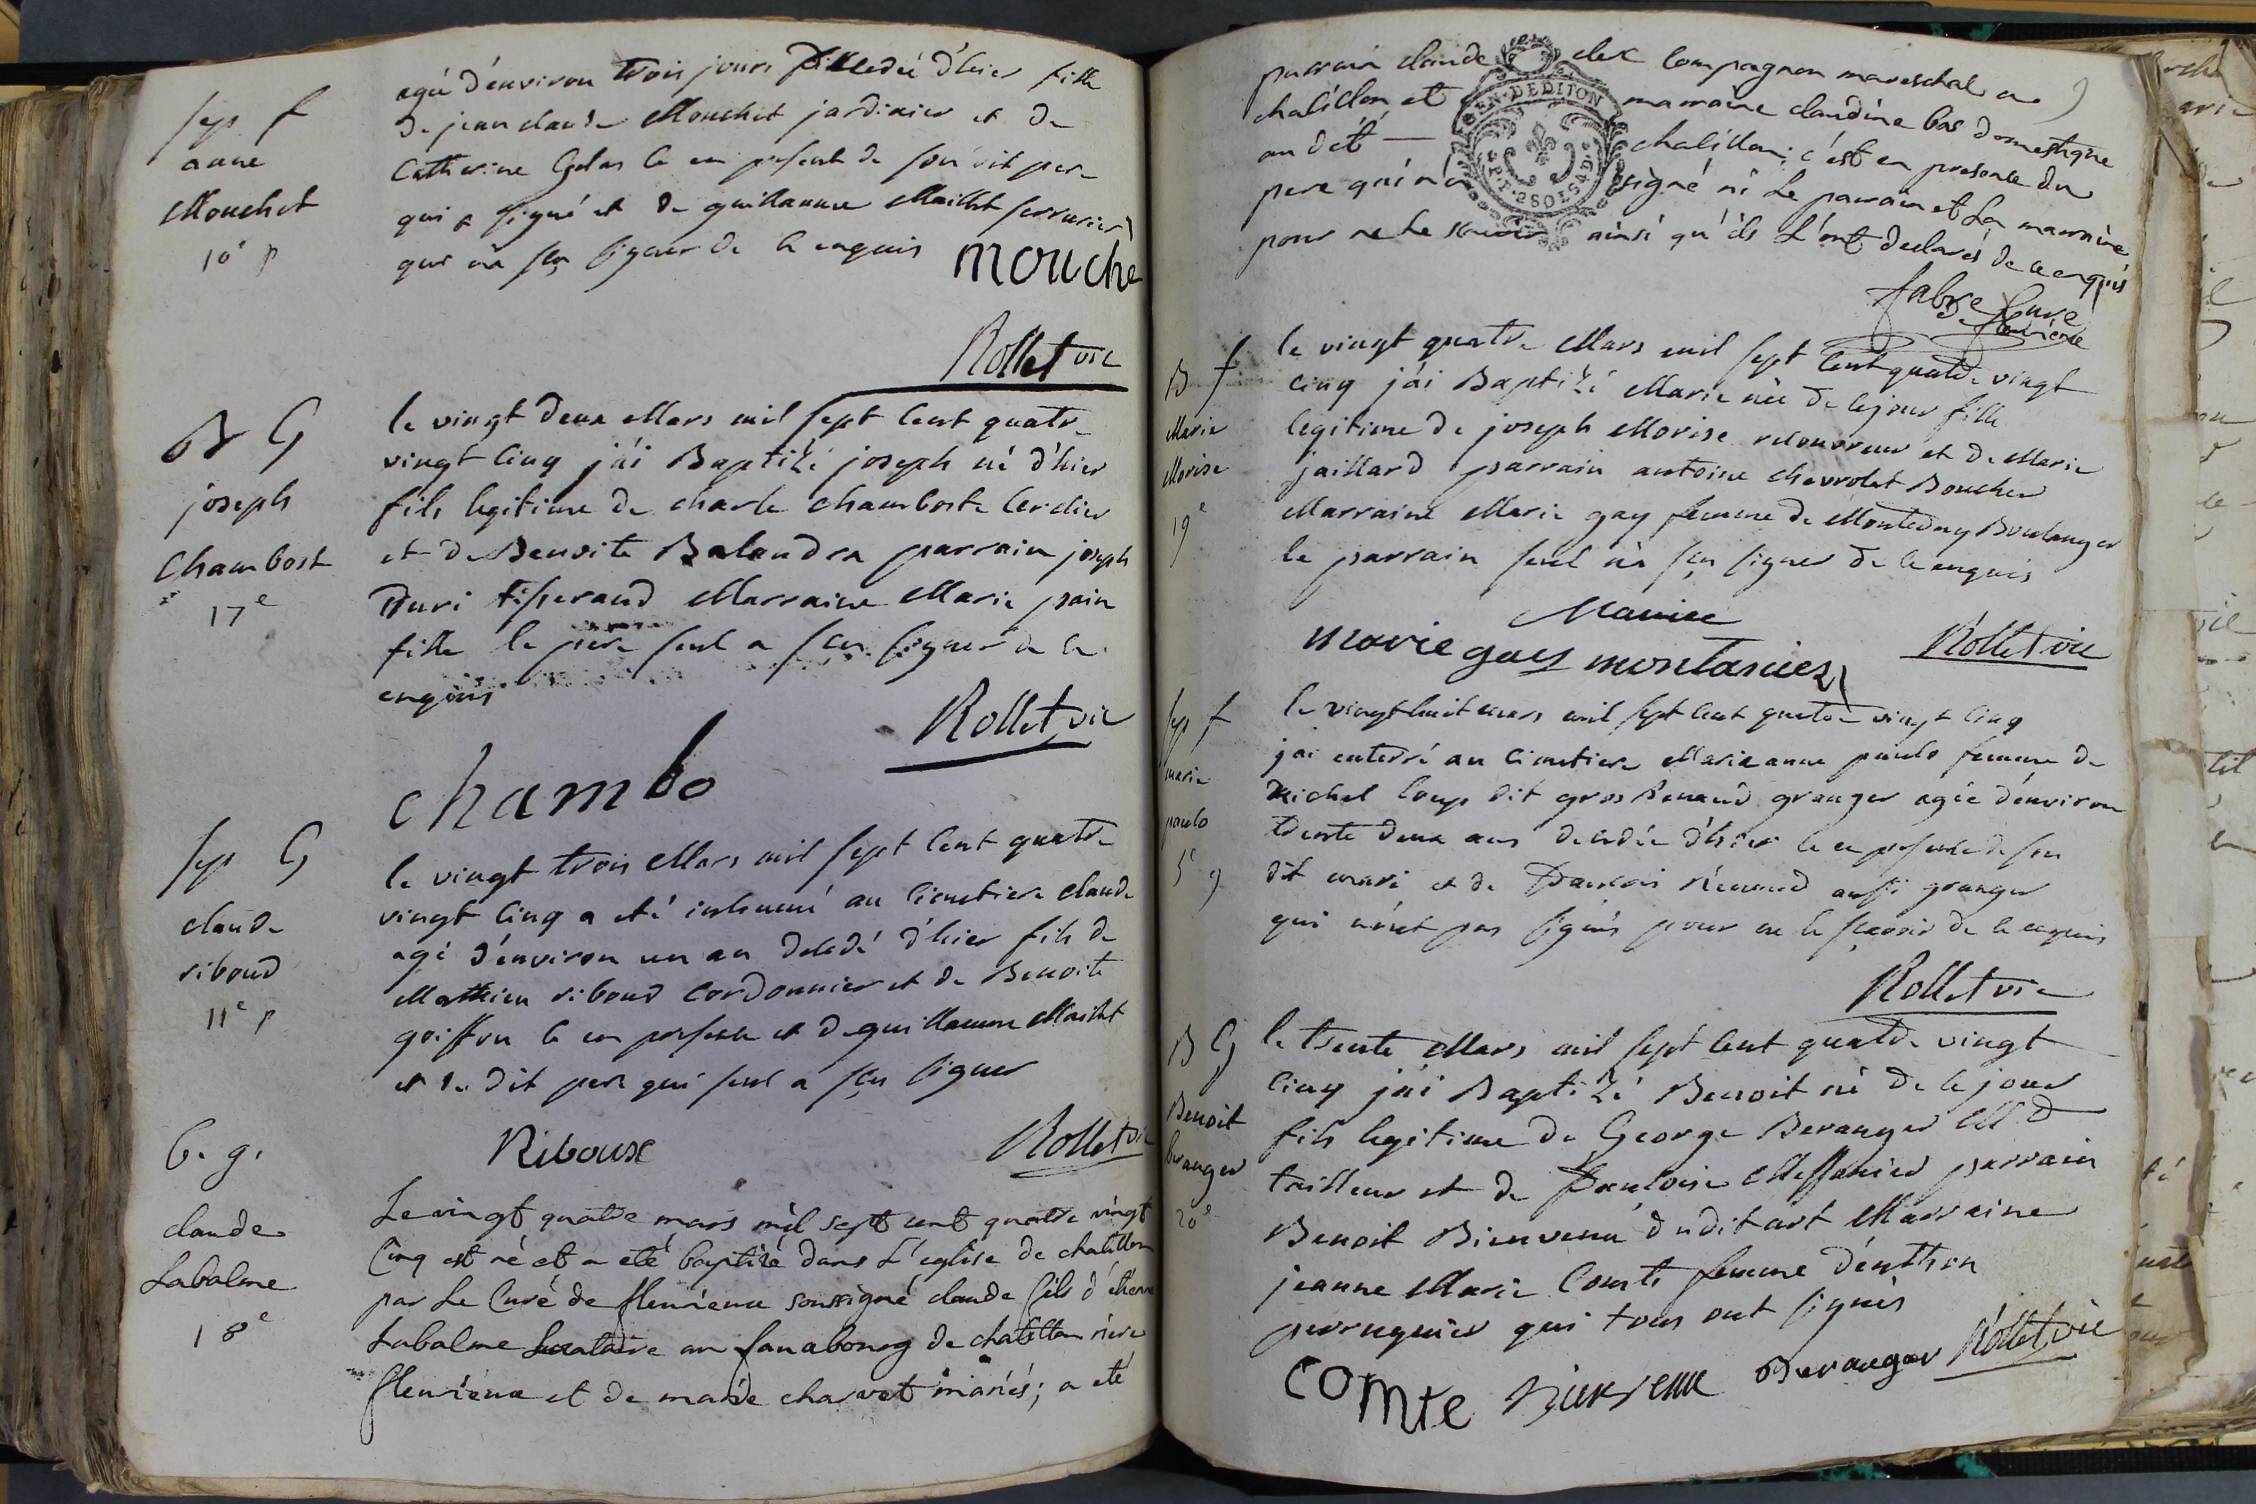 Sep f
anne
Mouchet
10e p
agée d'environ trois jours decedée d'hier fille
de jean claude Mouchet jardinier et de
Catherine Golas ce en presence de son dit pere
qui a signé et de guillaume Maillet serrurier
qui n'a sçu signer de ce enquis mouche
Rollet vic
B G
joseph
Chambost
17e
le vingt deux Mars mil sept cent quatre
vingt cinq j'ai Baptizé joseph né d'hier
fils legitime de charle chamboste cordier
et de Benoite Balandra parrain joseph
Duri tisserand Marraine Marie pain
fille le pere seul a sçu signer de ce
enquis
Rollet vic
chambo
Sep G
claude
riboud
11e p
le vingt trois Mars mil sept cent quatre
vingt cinq a eté inhumé au cimetiere claude
agé d'environ un an decedé d'hier fils de
Mathieu riboud cordonnier et de Benoite
goiffon ce en presence et de guillaume Maillet
et du dit pere qui seul a sçu signer
Riboux
Rollet vic
b. g.
claude
Labalme
18e
Le vingt quatre mars mil sept cent quatre vingt
cinq est né et a eté baptizé dans l'eglise de chatillon
par Le Curé de fleurieux soussigné claude fils d'étienne
Labalme Locataire au fauxbourg de chatillon riere
fleurieux et de marie charvet mariés; a eté
parrain claude clex compagnon mareschal a
chatillon et marraine claudine bas domestique
au dit — chatillon; c'est en presence du
pere qui n'a signé ni Le parrain et La marraine
pour ne Le sçavoir ainsi qu'ils L'ont declarés de ce enquis
fabre Curé
de fleurieux
GEN. DE DIJON
B f
Marie
Morise
19e
le vingt quatre Mars mil sept cent quatre vingt
cinq j'ai Baptizé Marie née de ce jour fille
legitime de joseph Morise recouvreur et de Marie
jaillard parrain antoine chevrolat Boucher
Marraine Marie gay femme de Montedny Boulanger
le parrain seul n'a sçu signer de ce enquis
Maurice
marie gay montanier
Rollet vic
Sep f
marie
paulo
5e g
le vingt huit mars mil sept cent quatre vingt cinq
j'ai enterré au cimetiere Marie anne paulo femme de
Michel loup dit gros Renaud granger agée d'environ
trente deux ans decedée d'hier ce en presence de son
dit mari et de francois renaud aussi granger
qui n'ont pas signés pour ne le sçavoir de ce enquis
Rollet vic
B G
Benoit
beranger
20e
le trente Mars mil sept cent quatre vingt
cinq j'ai Baptizé Benoit né de ce jour
fils legitime de George Beranger Md
tailleur et de francoise Messonier parrain
Benoit Bienvenu dudit art Marraine
jeanne Marie Comte femme d'enthon
perruquier qui tous ont signés
comte Bienvenu Beranger Rollet vic